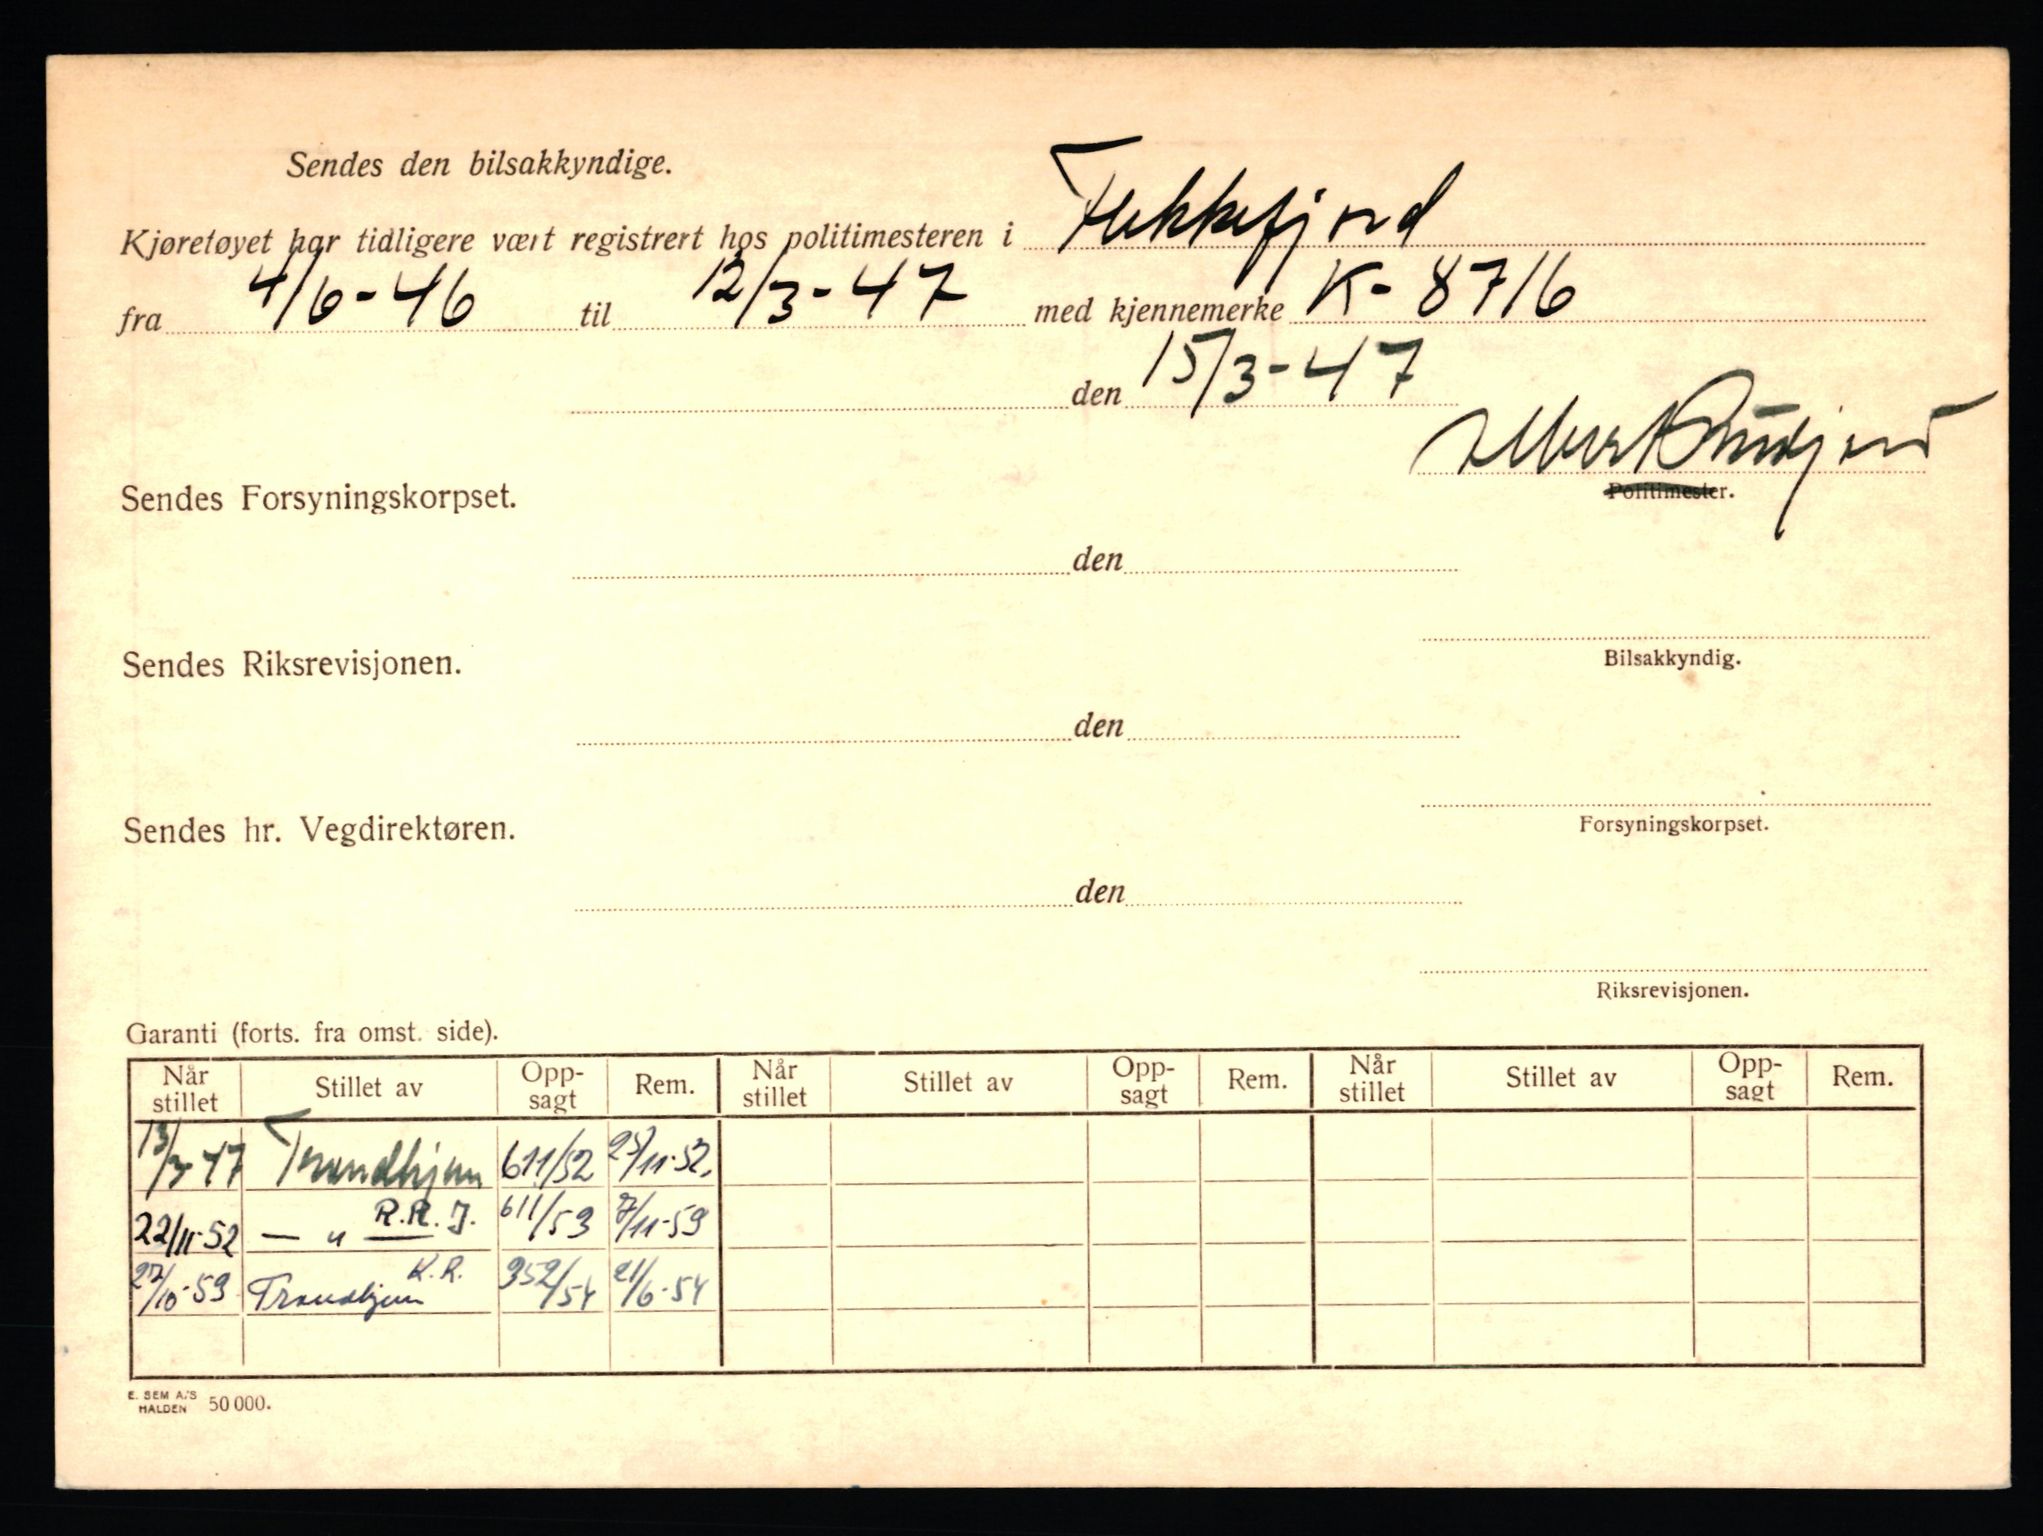 Sendes den bilsakkyndige.
Kjøretøyet har tidligere vært registrert hos politimesteren i Flekkefjord
fra 4/6-46 til 12/3-47 med kjennemerke K-8716
den 15/3-47
Albert
Politimester.
Sendes Forsyningskorpset.
den
Bilsakkyndig.
Sendes Riksrevisjonen.
den
Forsyningskorpset.
Sendes hr. Vegdirektøren.
den
Riksrevisjonen.
Garanti (forts. fra omst. side).
Når stillet Stillet av Opp-sagt Rem. Når stillet Stillet av Opp-sagt Rem. Når stillet Stillet av Opp-sagt Rem.
13/3-47 Trondhjem 611/52 25/11-52.
22/11-52 — " R.R.J. 611/53 7/11-53
27/10-53 Trondhjem K.R. 352/54 21/6-54
E. SEM A/S HALDEN 50 000.